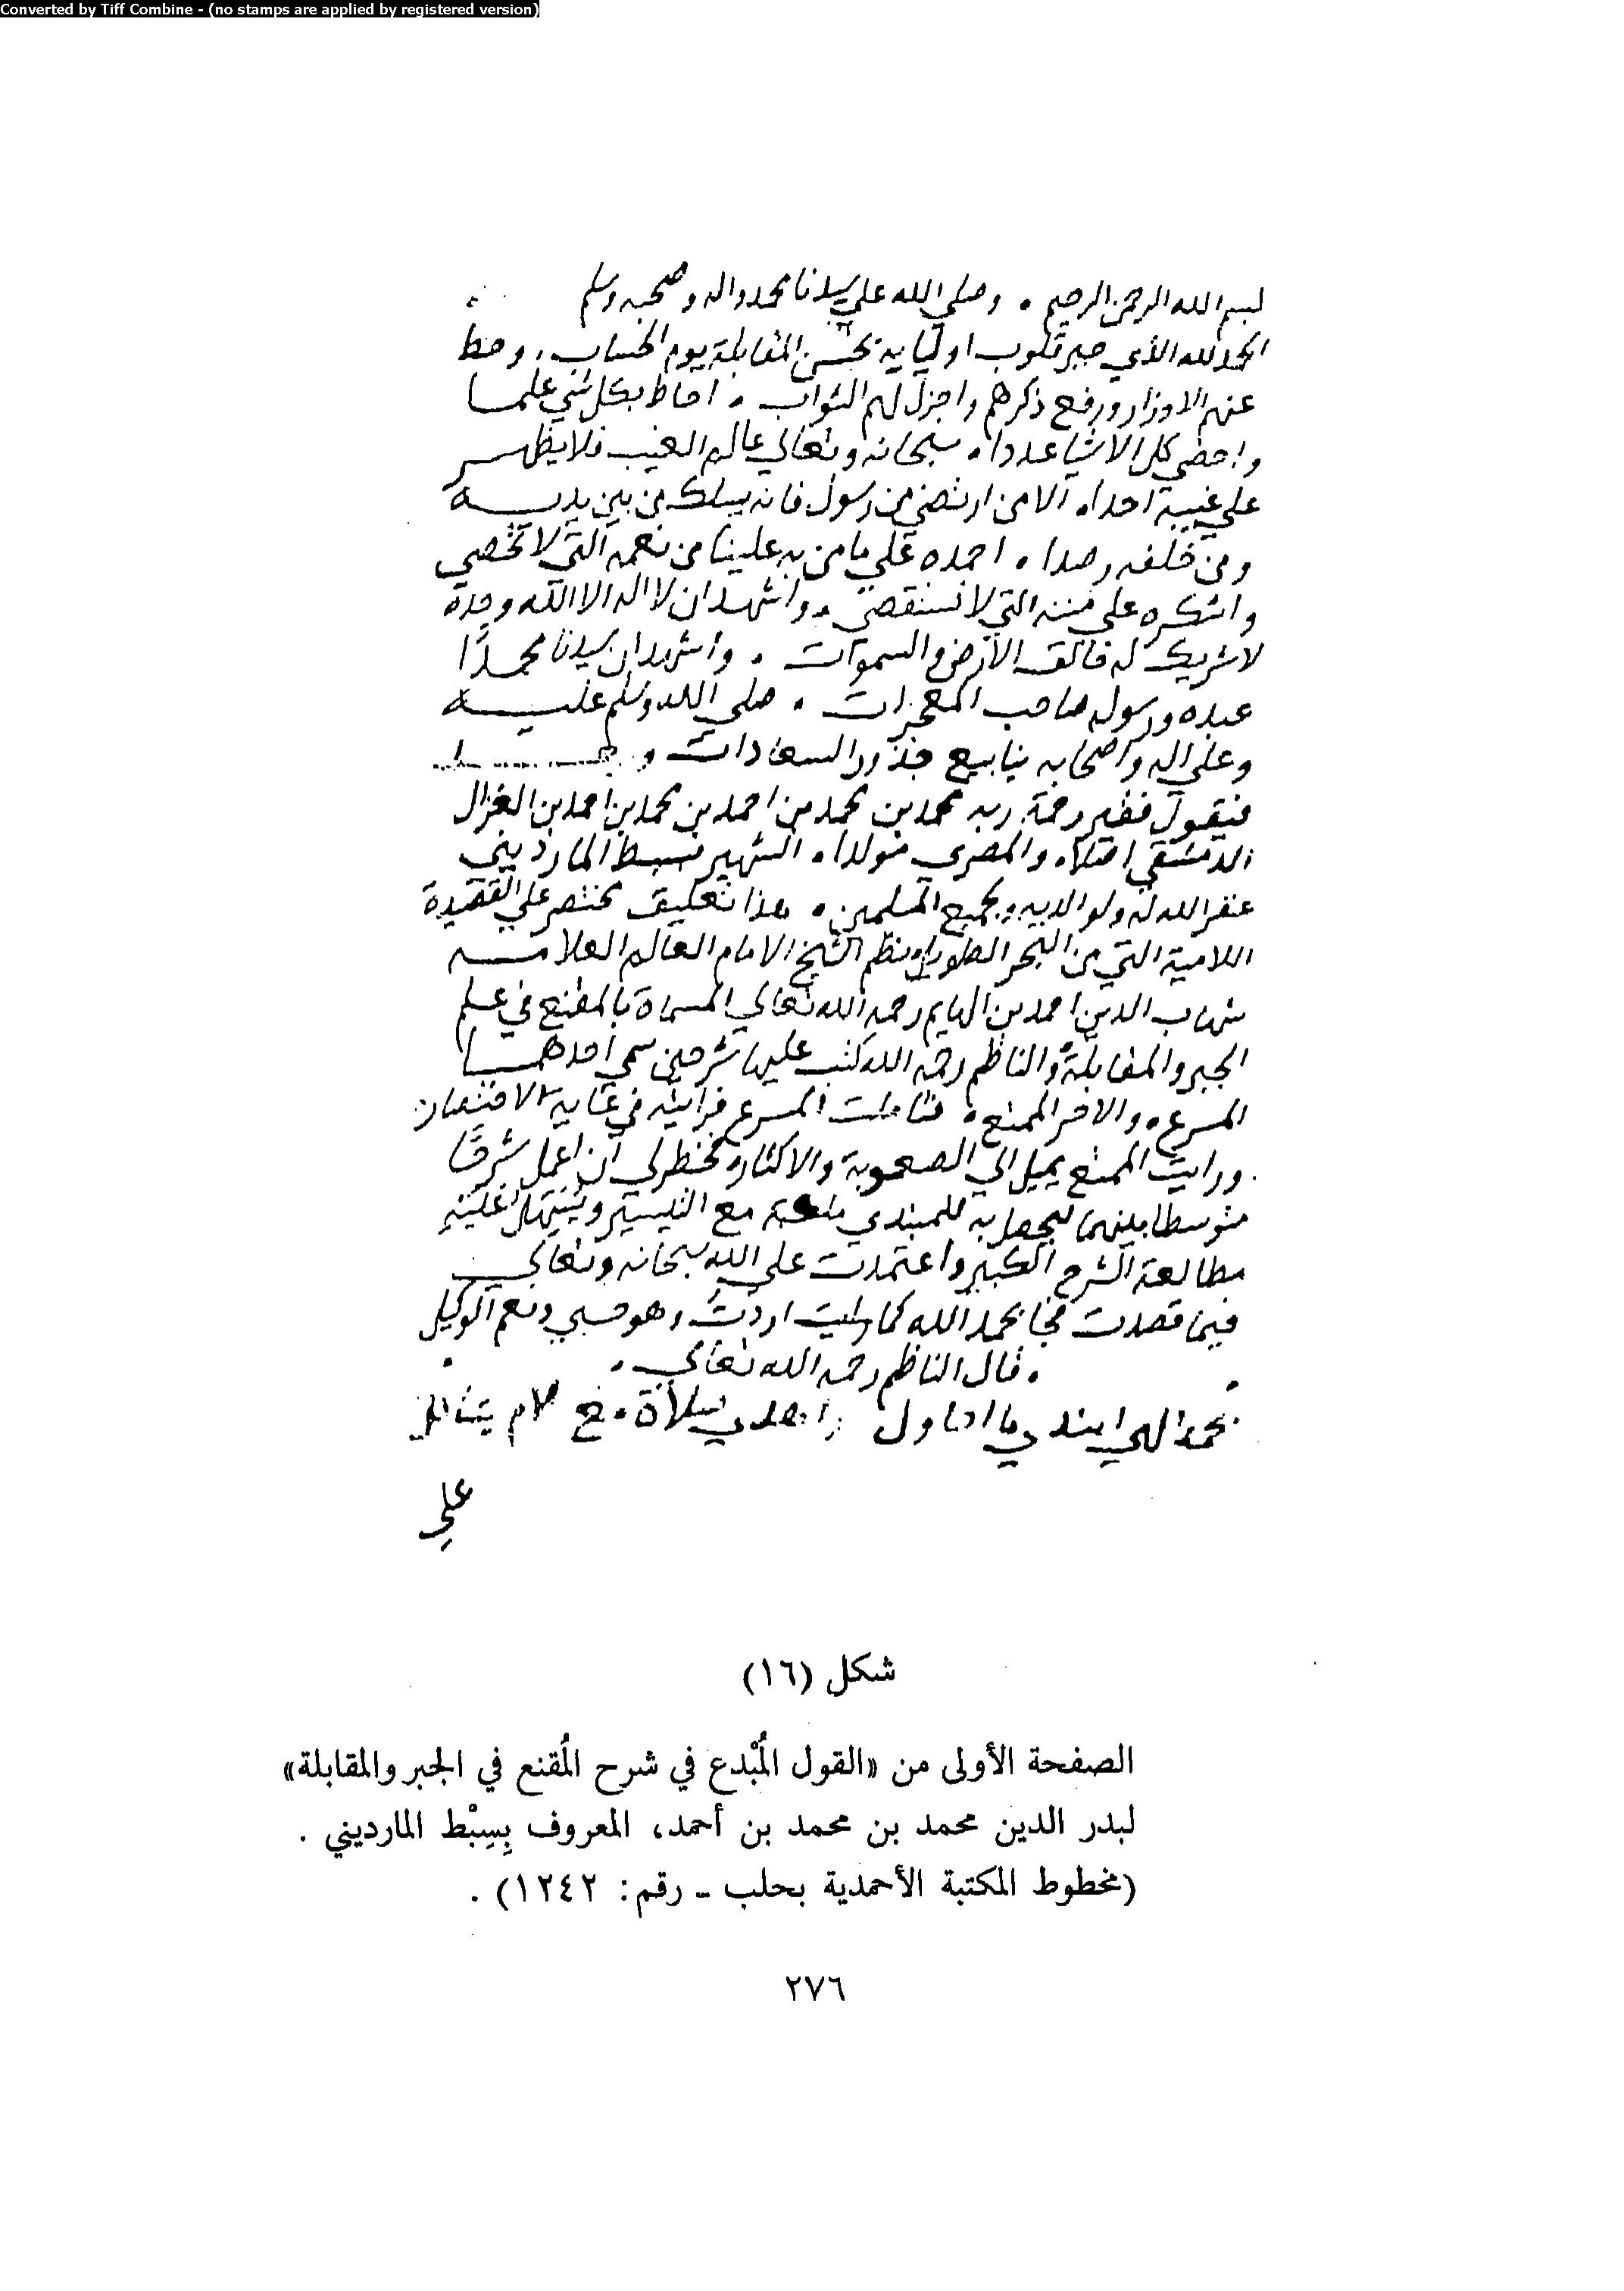 Converted by Tiff Combine - (no stamps are applied by registered version)
بسم الله الرحمن الرحيم . وصلي الله علي سيدنا محمد واله وصحبه وسلم
الحمد لله الذي جبر قلوب اوليايه بحسن المقابلة يوم الحساب . وحط
عنهم الاوزار ورفع ذكرهم واجزل لهم الثواب . احاط بكل شي علما
واحصي كل الاشيا عددا . سبحانه وتعالي عالم الغيب فلا يظهر
علي غيبه احدا . الا من ارتضي من رسول فانه يسلك من بين يديه
ومن خلفه رصدا . احمده علي ما من به علينا من نعمه التي لا تحصي
واشكره علي مننه التي لا تستقصي . واشهد ان لا اله الا الله وحده
لا شريك له خالق الارض والسموات . واشهد ان سيدنا محمدًا
عبده ورسوله صاحب المعجزات . صلي الله وسلم عليه
وعلي اله واصحابه ينابيع جذور السعادات
فيقول فقير رحمة ربه محمد بن محمد بن احمد بن محمد بن احمد بن الغزال
الدمشقي اصلا . والمصري مولدا . الشهير بسبط المارديني
غفر الله له ولوالديه ولجميع المسلمين . هذا تعليق مختصر علي القصيدة
اللامية التي من البحر الطويل نظم الشيخ الامام العالم العلامه
شهاب الدين احمد بن الهايم رحمه الله تعالي المسماة بالمقنع في علم
الجبر والمقابلة والناظم رحمه الله كتب عليها شرحين سمي احدهما
المسرع . والاخر الممتع . فتاملت المسرع فرايته في غاية الاختصار
ورايت الممتع يميل الي الصعوبة والاكثار فخطر لي ان اعمل شرحًا
متوسطا بينهما ليحصل به للمبتدي مع التيسير ويسهل عليه
مطالعة الشرح الكبير واعتمدت علي الله سبحانه وتعالي
فيما قصدت بحمد الله كما اردت وهو حسبي ونعم الوكيل
. قال الناظم رحمه الله تعالي .
بحمد الهي ابتدي ما احاول واهدي صلاة مع سلام
علي
شكل (١٦)
الصفحة الأولى من «القول المُبْدع في شرح المُقنع في الجبر والمقابلة»
لبدر الدين محمد بن محمد بن أحمد، المعروف بِسِبْط المارديني .
(مخطوط المكتبة الأحمدية بحلب - رقم: ١٢٤٢) .
٢٧٦